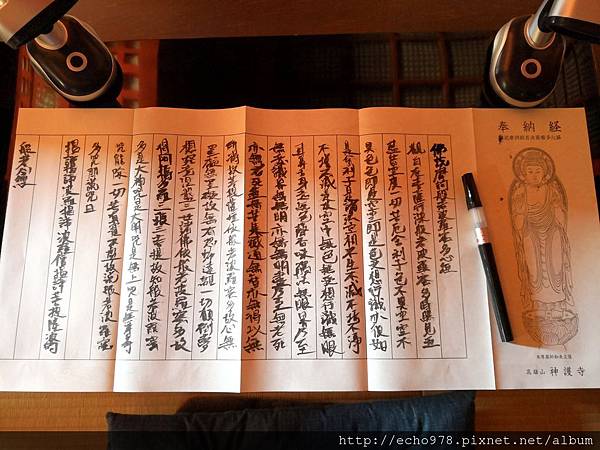 奉納経
本尊薬師如来立像
高雄山 神護寺
佛説摩訶般若波羅蜜多心経
観自在菩薩行深般若波羅蜜多時照見五
蘊皆空度一切苦厄舎利子色不異空空不
異色色即是空空即是色受想行識亦復如
是舎利子是諸法空相不生不滅不垢不浄
不増不減是故空中無色無受想行識無眼
耳鼻舌身意無色声香味触法無眼界乃至
無意識界無無明亦無無明尽乃至無老死
亦無老死尽無苦集滅道無智亦無得以無
所得故菩提薩埵依般若波羅蜜多故心無
罣礙無罣礙故無有恐怖遠離一切顛倒夢
想究竟涅槃三世諸佛依般若波羅蜜多故
得阿耨多羅三藐三菩提故知般若波羅蜜
多是大神咒是大明咒是無上咒是無等等
咒能除一切苦真実不虚故説般若波羅蜜
多咒即説咒曰
揭諦揭諦波羅揭諦波羅僧揭諦菩提薩婆訶
般若心経
http://echo978.pixnet.net/album